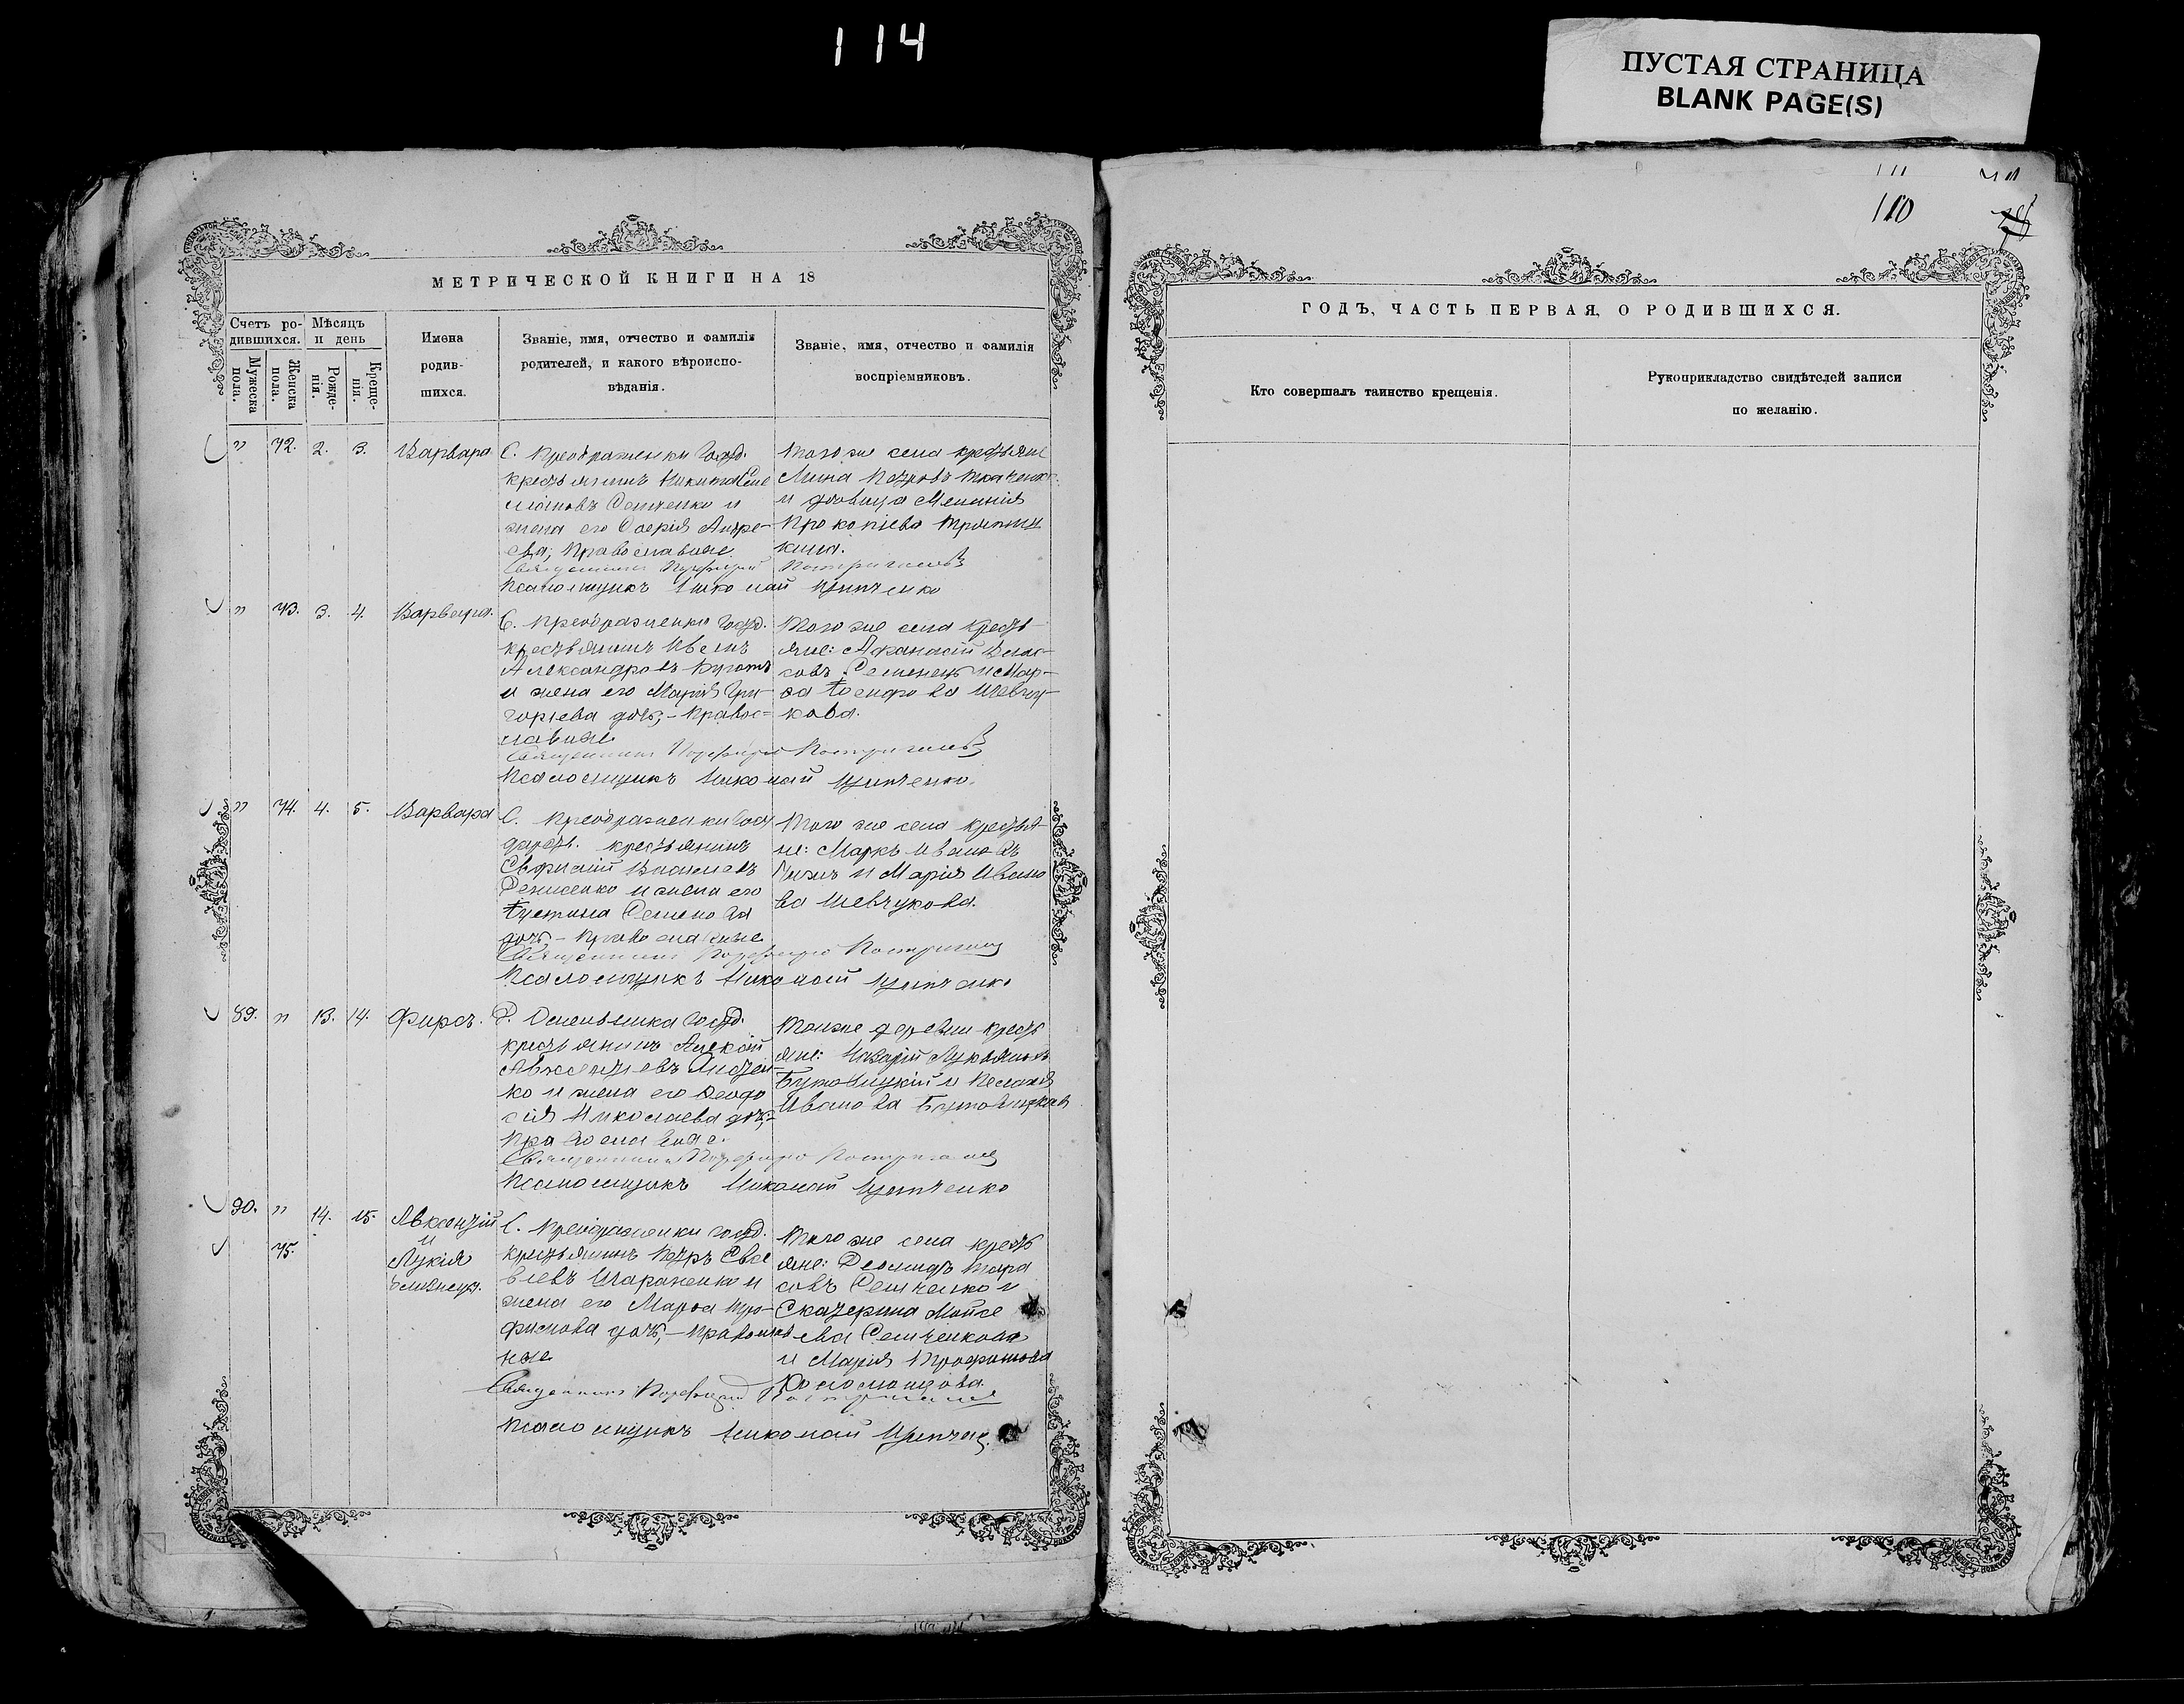 114
ПУСТАЯ СТРАНИЦА
BLANK PAGE(S)
МЕТРИЧЕСКОЙ КНИГИ НА 18
Счетъ ро-
дившихся.
Мѣсяцъ
и день
Мужеска
пола.
Женска
пола.
Рожде-
нія.
Креще-
нія.
Имена
родив-
шихся.
Званіе, имя, отчество и фамилія
родителей, и какого вѣроиспо-
вѣданія.
Званіе, имя, отчество и фамилія
воспріемниковъ.
" 72. 2. 3. Варвара
С. Преображенки Госуд.
крестьянинъ Никита
Семченко и
жена его Андре-
ева, Православные
Священникъ Порфирий
Того же села крестьяне
Мина Петровъ Ткаченко
и вдовица Меланія
Прокопіева
кина.
Псаломщикъ Николай
" 73. 3. 4. Варвара.
С. Преображенки Госуд.
крестьянинъ Иванъ
Александровъ
и жена его Марія Гри-
горіева дочь, - Правос-
лавные
Священникъ Порфирій
Того же села кресть-
яне: Афанасій Влас-
совъ Семенецъ и Мар-
ѳа Іосифова Шевчу-
кова.
Псаломщикъ Николай
" 74. 4. 5. Варвара
С. Преображенки Госу
дарств. крестьянинъ
Евфимій
Денисенко и жена его
Іустина Семенова
дочь, - Православные
Священникъ Порфирій
Того же села крестья-
не: Маркъ Ивановъ
и Марія Ивано
ва Шевчукова.
Псаломщикъ Николай
89. " 13. 14. Фирсъ.
Д. Госуд.
крестьянинъ Алексій
Авксентіевъ
ко и жена его Ѳеодо
сія Николаева дочь,-
Православные.
Священникъ Порфирій
Тойже деревни кресть
яне: Назарій Лукьяновъ
Бутовицкій и Пелагія
Иванова Бутовицкая
Псаломщикъ Николай
90. " 14. 15. Авксентій
и
75. Лукія
близнецы.
С. Преображенки Госуд.
крестьянинъ Петръ Евсе
віевъ и
жена его Марѳа Тро-
фимова дочь, - Православ
ные
Священникъ Порфирій
Того же села кресть
яне: Діомидъ Тара
совъ Семченко и
Екатерина Мойсе
ева Семченкова
и Марія Трофимова
Псаломщикъ Николай
111
110
ГОДЪ, ЧАСТЬ ПЕРВАЯ, О РОДИВШИХСЯ.
Кто совершалъ таинство крещенія.
Рукоприкладство свидѣтелей записи
по желанію.